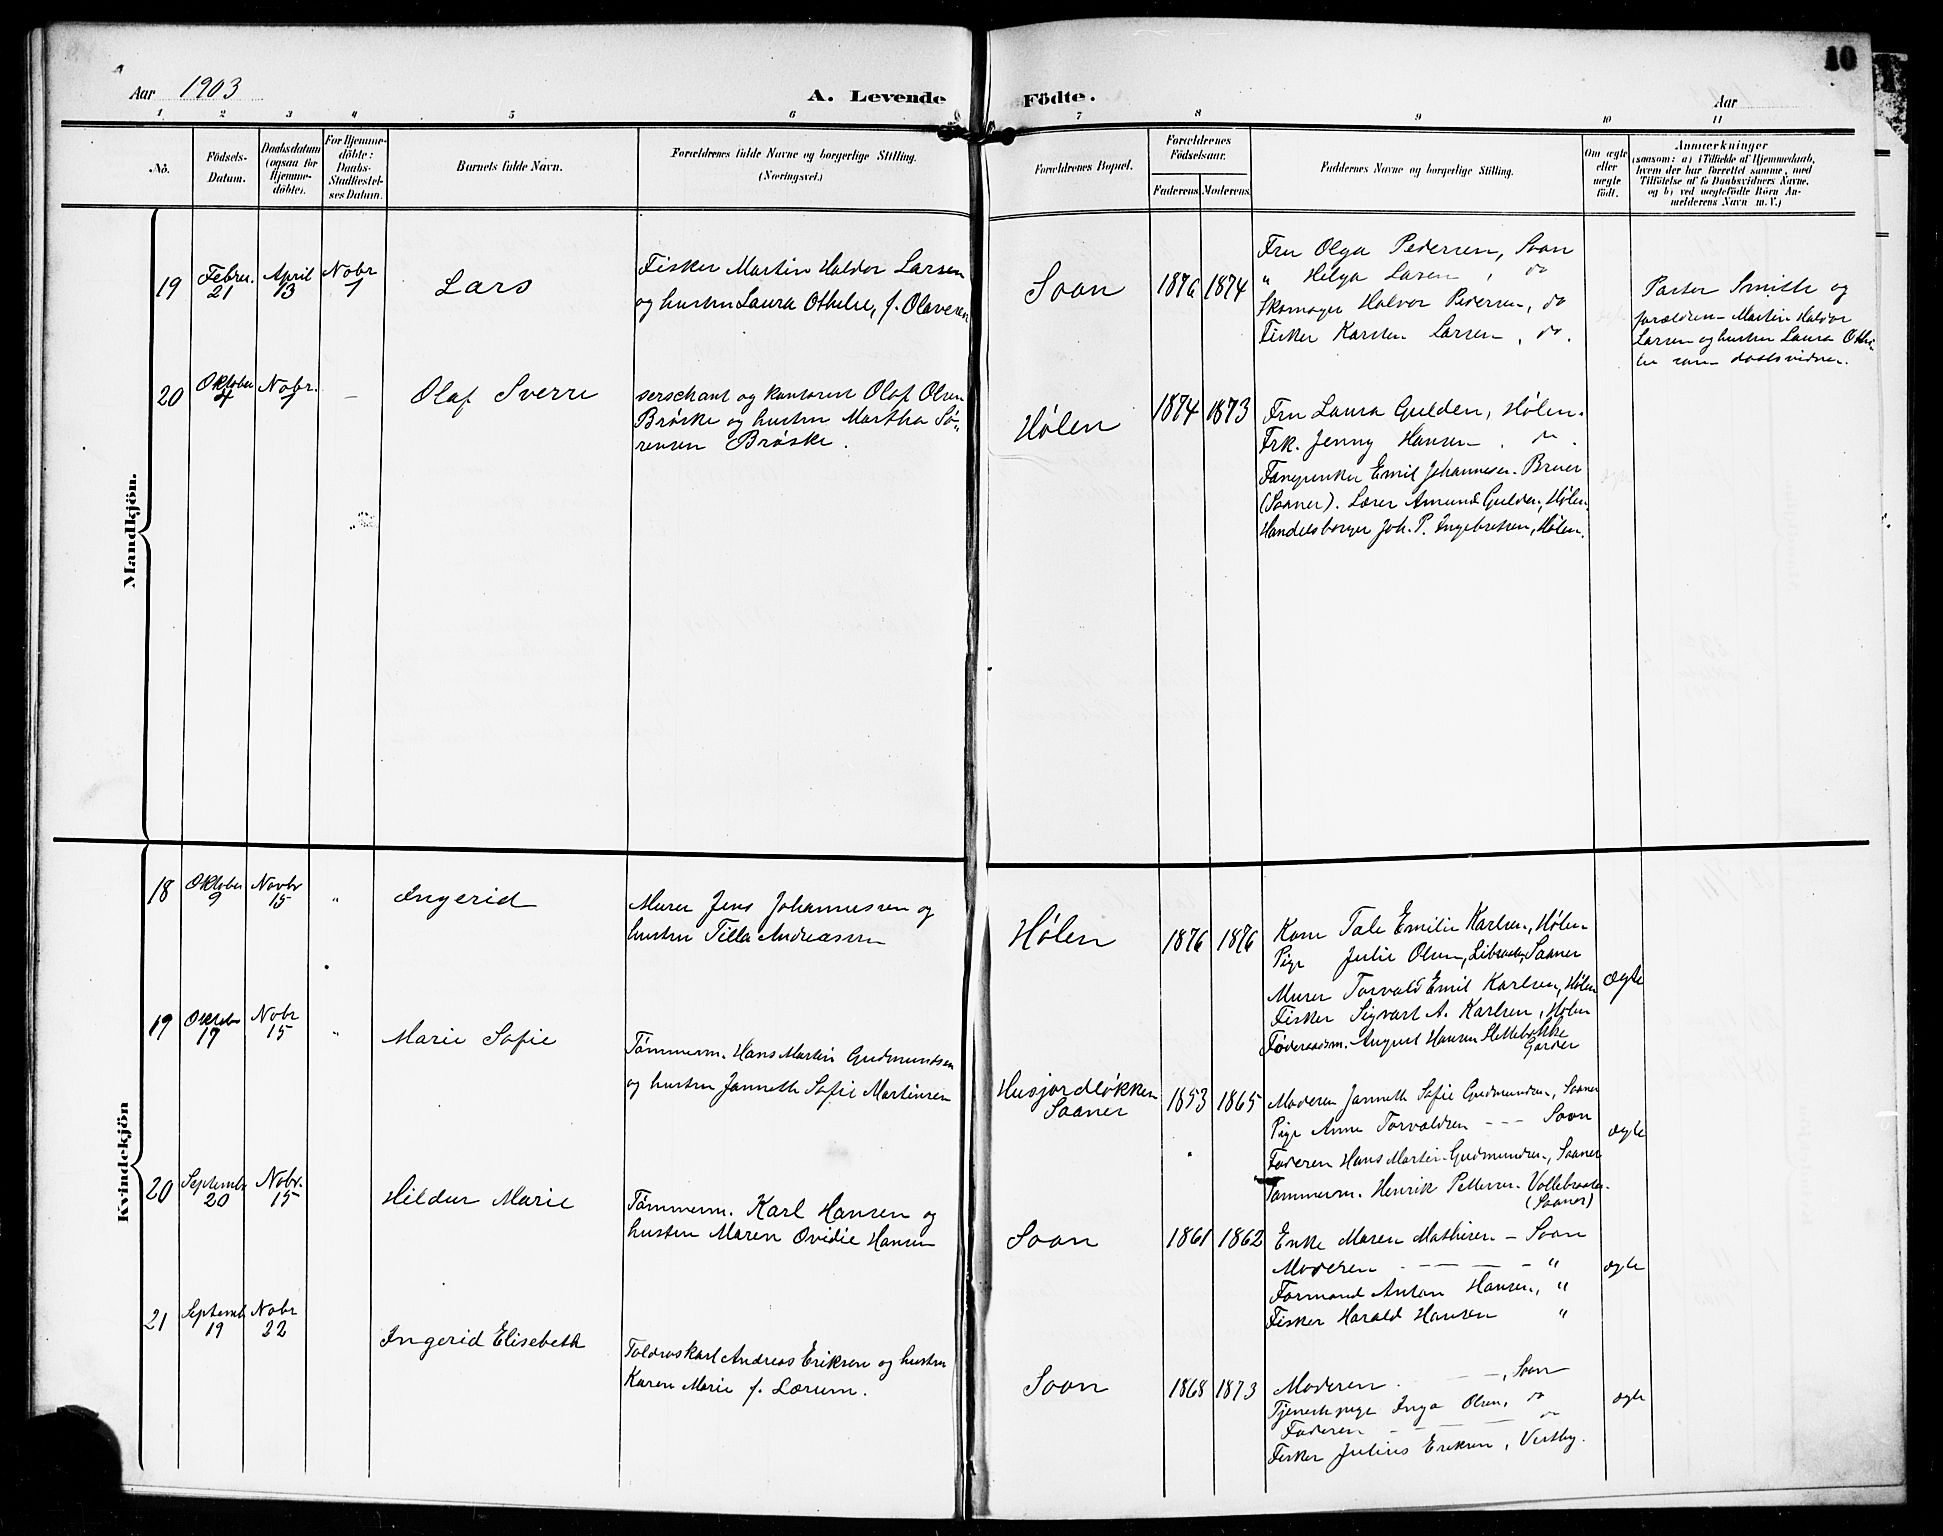 10
Aar 1903
A. Levende Födte.
Aar
1 2 3 4 5 6 7 8 9 10 11
No.
Födsels-
Datum.
Daabsdatum
(ogsaa for
Hjemme-
döbte).
For Hjemme-
döbte:
Daabs-
Stadfæstel-
ses Datum.
Barnets fulde Navn.
Forældrenes fulde Navne og borgerlige Stilling.
(Næringsvei.)
Forældrenes Bopæl.
Forældrenes
Födselsaar.
Faderens. Moderens.
Faddernes Navne og borgerlige Stilling.
Om ægte
eller
uægte
født.
Anmærkninger
(saasom: a) i Tilfælde af Hjemmedaab,
hvem der har forrettet samme, med
Tilföielse af to Daabsvidners Navne,
og b) ved uægtefödte Börn An-
melderens Navn m. V.)
Mandkjön.
19
Febru.
21
April
13
Nobr
1
Lars
Fisker Martin Haldor Larsen
og hustru Laura Othelie, f. Olavesen
Soon
1876 1874
Fru Olga Pedersen, Soon
" Helga Larsen, do
Skomager Halvor Pedersen, do
Fisker Karsten Larsen, do.
Pastor Smith og
forældren- Martin Haldor
Larsen og hustru Laura Othe-
lie som daabsvidner.
20
Oktober
4
Nobr.
1
–
Olaf Sverre
serschant og kontorist Olaf Olsen
Brøske og hustru Martha Sø-
rensen Brøske.
Hølen
1874 1873
Fru Laura Gulden, Hølen.
Frk. Jenny Hansen, do.
Emil Johannesen. Bruer
(Saaner). Lærer Amund Gulden, Hølen
Handelsborger Joh. P. Ingebretsen, Hølen.
Kvindekjön
18
Oktober
9
Novbr
15
"
Ingerid
Murer Jens Johannessen og
hustru Tilla Andreassen
Hølen
1876 1876
Kone Tale Emilie Karlsen, Hølen
Pige Julie Olsen, Saaner
Murer Torvald Emil Karlsen, Hølen
Fisker Sigvart A. Karlsen, Hølen
Føderaadsm. August Hansen Slettebakke
Garder
ægte
19
Oktobr
17
Nobr
15
"
Marie Sofie
Tømmerm. Hans Martin Gudmundsen
og hustru Janneth Sofie Martinsen
Husjordløkken
Saaner
1853 1865
Moderen Janneth Sofie Gudmundsen, Saaner
Pige Anne Torvaldsen - - - Soon
Faderen Hans Martin Gudmundsen, Saaner
Tømmerm. Henrik Pettersen. Vollebraaten.
(Saaner)
ægte
20
Septembr
20
Nobr.
15
Hildur Marie
Tømmerm. Karl Hansen og
hustru Maren Ovidie Hansen
Soon
1861 1862
Enke Maren Mathisen – Soon
Moderen - - - - "
Formand Anton Hansen, "
Fisker Harald Hansen "
ægte
21
Septembr
19
Nobr
22
Ingerid Elisabeth
Toldroskarl Andreas Eriksen og hustru
Karen Marie f. Lærum.
Soon
1868 1873
Moderen - - -, Soon
Tjenestepige Inga Olsen, do
Faderen - - - do
Fisker Julius Eriksen, Vestby.
ægte